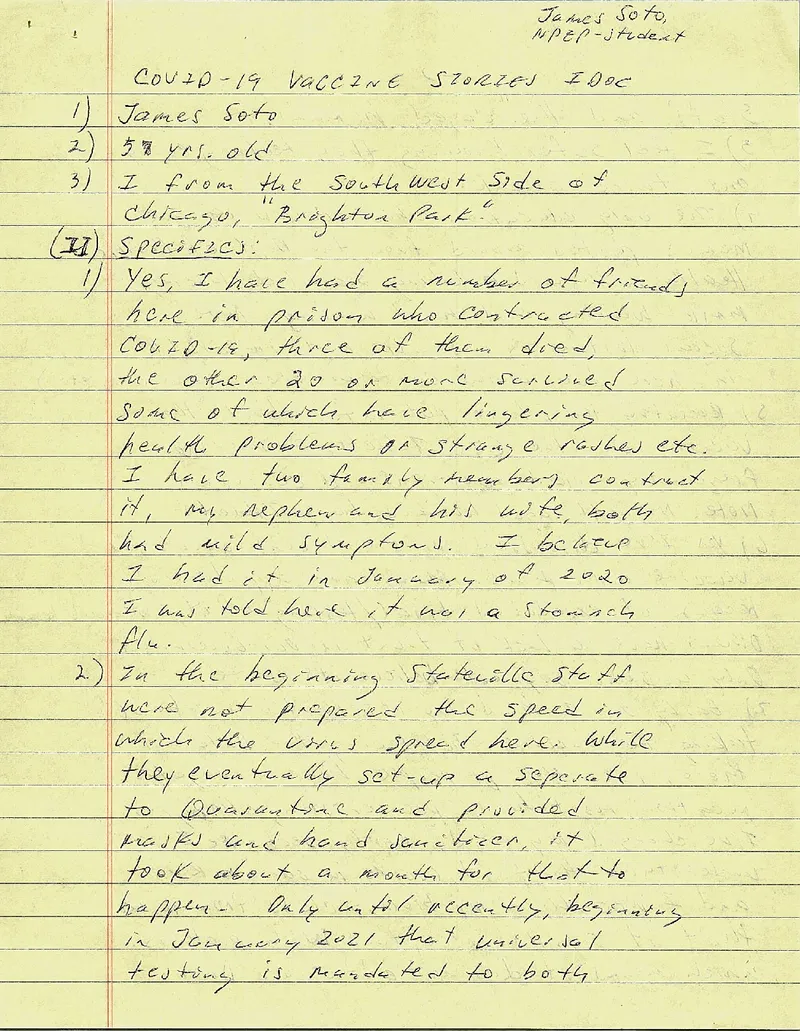 James Soto,
NPEP-student
COVID-19 VACCINE STORIES IDOC
1) James Soto
2) 57 yrs. old
3) I from the Southwest Side of
Chicago, "Brighton Park".
(II) Specifics:
1) Yes, I have had a number of friends
here in prison who contracted
COVID-19, three of them died,
the other 20 or more survived
some of which have lingering
health problems or strange rashes etc.
I have two family members contract
it, my nephew and his wife, both
had mild symptons. I believe
I had it in January of 2020
I was told here it was a stomach
flu.
2) In the beginning Stateville Staff
were not prepared the speed in
which the virus spread here. While
they eventually set-up a seperate
to Quarantine and provided
masks and hand sanitizer, it
took about a month for that to
happen. Only until recently, beginning
in January 2021 that universal
testing is mandated to both